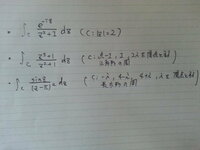 ∫_C e^{-πz}/(z²+1) dz (C:|z|=2)
∫_C (z³+1)/(z²+1) dz (C: 点 -1, 1, 2i を頂点とする
三角形の周)
∫_C sin z/(2-π)² dz (C: -i, 4-i, 4+i, i を頂点とする
長方形の周)